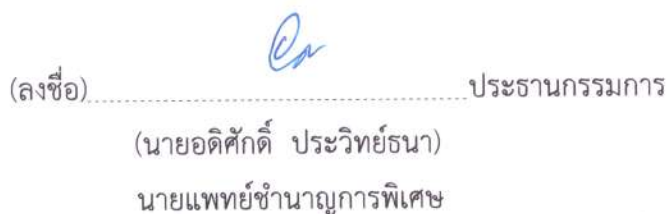 (ลงชื่อ)........................................ประธานกรรมการ
(นายอดิศักดิ์ ประวิทย์ธนา)
นายแพทย์ชำนาญการพิเศษ